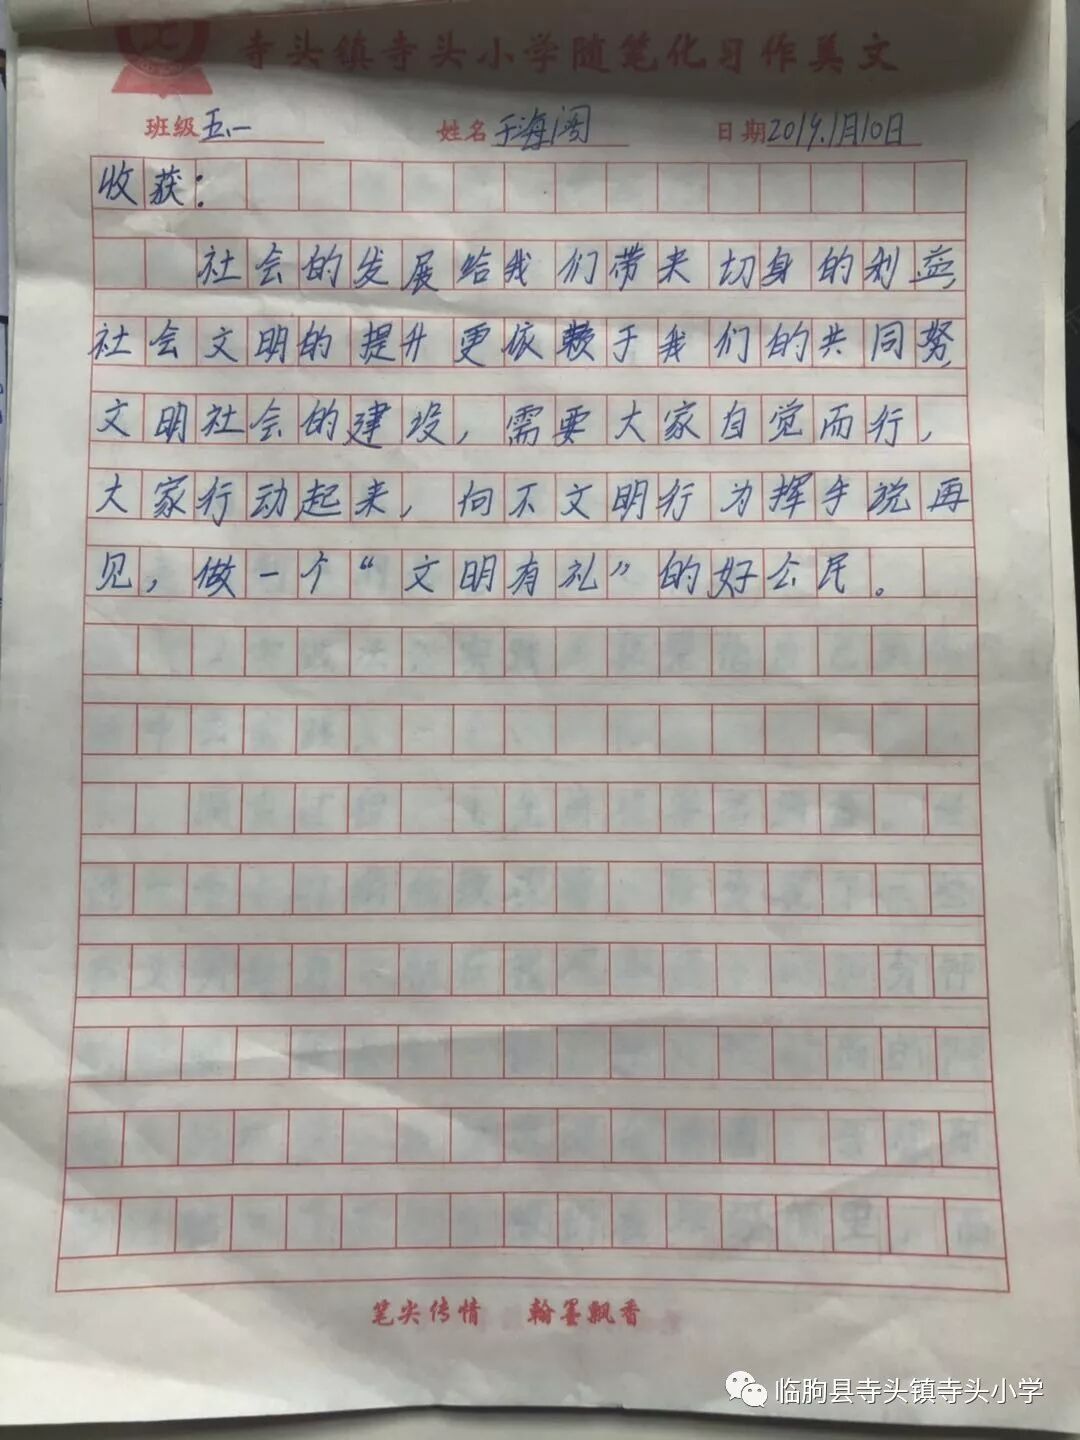 寺头镇寺头小学随笔化习作美文
班级 五.一 姓名 于海阔 日期 2019.1月10日
收获：
社会的发展给我们带来切身的利益，
社会文明的提升更依赖于我们的共同努，
文明社会的建设，需要大家自觉而行，
大家行动起来，向不文明行为挥手说再
见，做一个“文明有礼”的好公民。
笔尖传情 翰墨飘香
临朐县寺头镇寺头小学